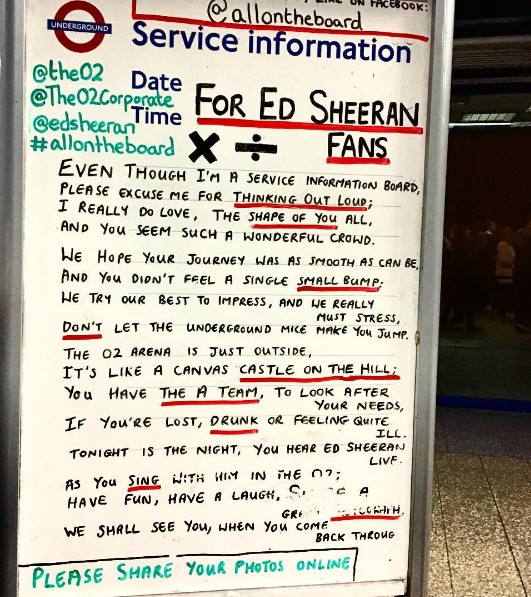 LIKE ON FACEBOOK:
@allontheboard
UNDERGROUND
Service information
@the02
@The02Corporate
@edsheeran
#allontheboard
Date
Time
FOR ED SHEERAN
FANS
× ÷
EVEN THOUGH I'M A SERVICE INFORMATION BOARD,
PLEASE EXCUSE ME FOR THINKING OUT LOUD;
I REALLY DO LOVE, THE SHAPE OF YOU ALL,
AND YOU SEEM SUCH A WONDERFUL CROWD.
WE HOPE YOUR JOURNEY WAS AS SMOOTH AS CAN BE,
AND YOU DIDN'T FEEL A SINGLE SMALL BUMP;
WE TRY OUR BEST TO IMPRESS, AND WE REALLY
MUST STRESS,
DON'T LET THE UNDERGROUND MICE MAKE YOU JUMP.
THE 02 ARENA IS JUST OUTSIDE,
IT'S LIKE A CANVAS CASTLE ON THE HILL;
YOU HAVE THE A TEAM, TO LOOK AFTER
YOUR NEEDS,
IF YOU'RE LOST, DRUNK OR FEELING QUITE
ILL.
TONIGHT IS THE NIGHT, YOU HEAR ED SHEERAN
LIVE.
AS YOU SING WITH HIM IN THE 02;
HAVE FUN, HAVE A LAUGH, A
WE SHALL SEE YOU, WHEN YOU COME
BACK THROUG
PLEASE SHARE YOUR PHOTOS ONLINE